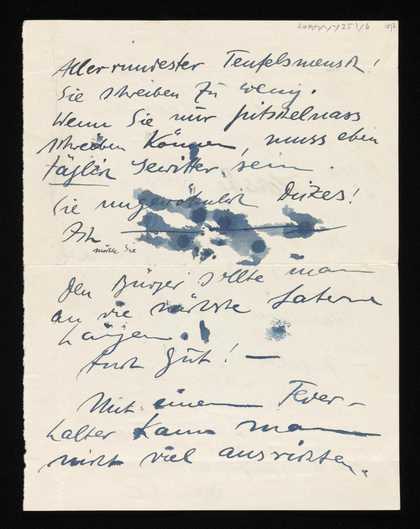 Allerrundester Teufelsmensch!
Sie schreiben zu wenig.
Wenn Sie nur pitschelnass
schreiben können, muss eben
täglich Gewitter sein.
Sie ungewöhnlich Dickes!
Ich
möchte Sie
Den Bürger sollte man
an die nächste Laterne
hängen.
Auch gut! —
Mit einem Feder-
halter kann man
nicht viel ausrichten.